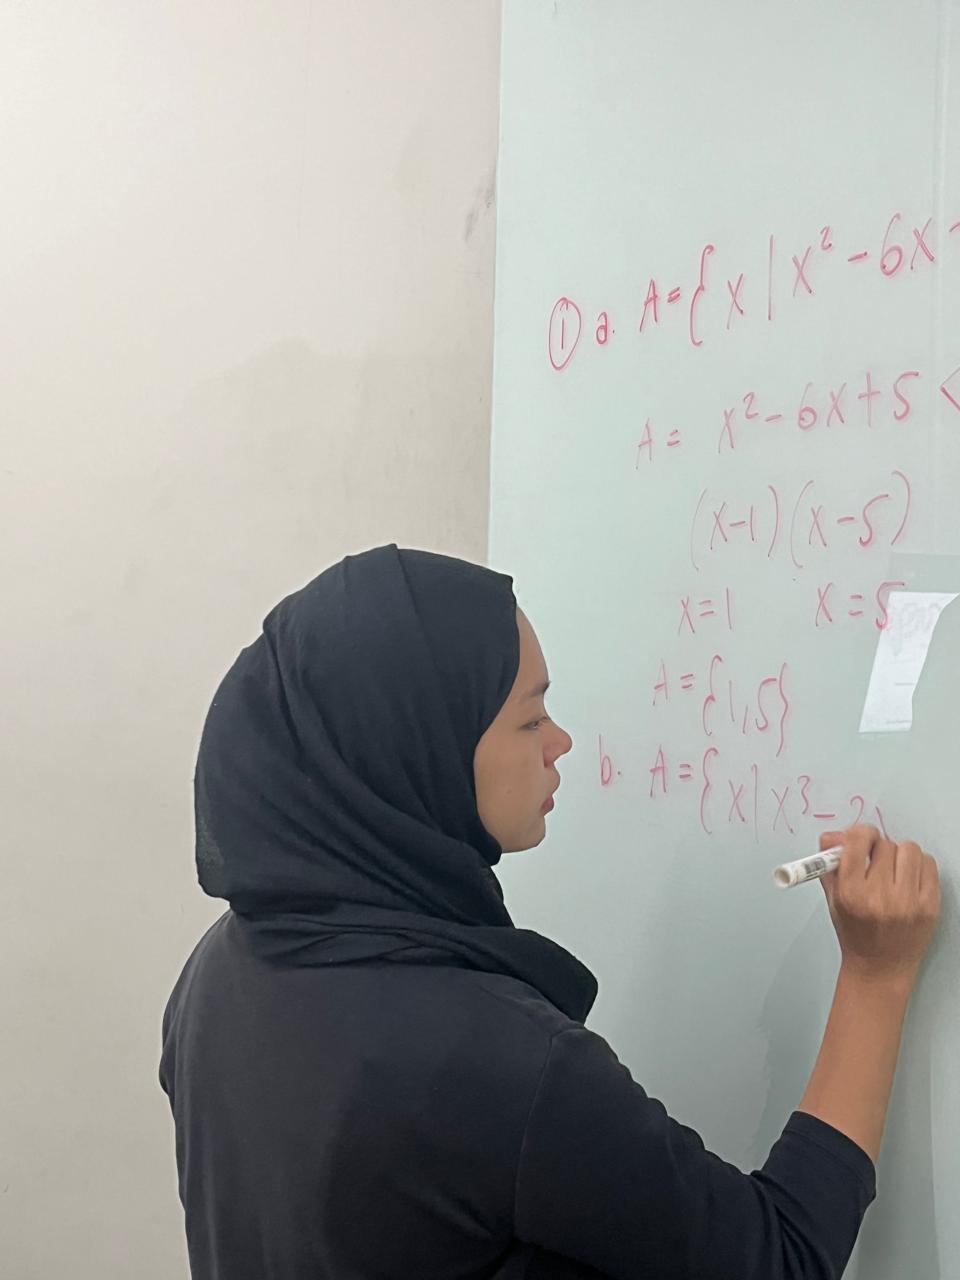 ① a. A = { x | x² - 6x
A = x² - 6x + 5 <
(x-1) (x-5)
x = 1 x = 5
A = {1,5}
b. A = { x | x³ - 2